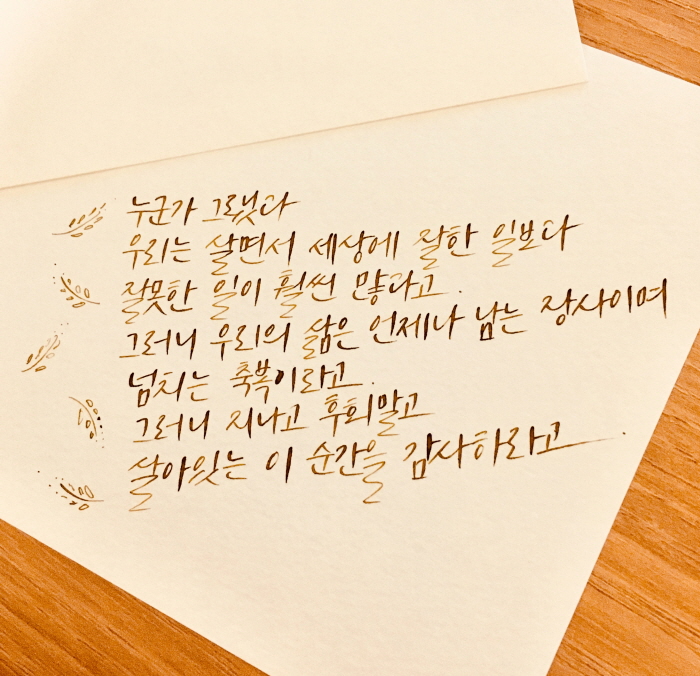 누군가 그랬다
우리는 살면서 세상에 잘한 일보다
잘못한 일이 훨씬 많다고.
그러니 우리의 삶은 언제나 남는 장사이며
넘치는 축복이라고.
그러니 지나고 후회말고
살아있는 이 순간을 감사하라고.